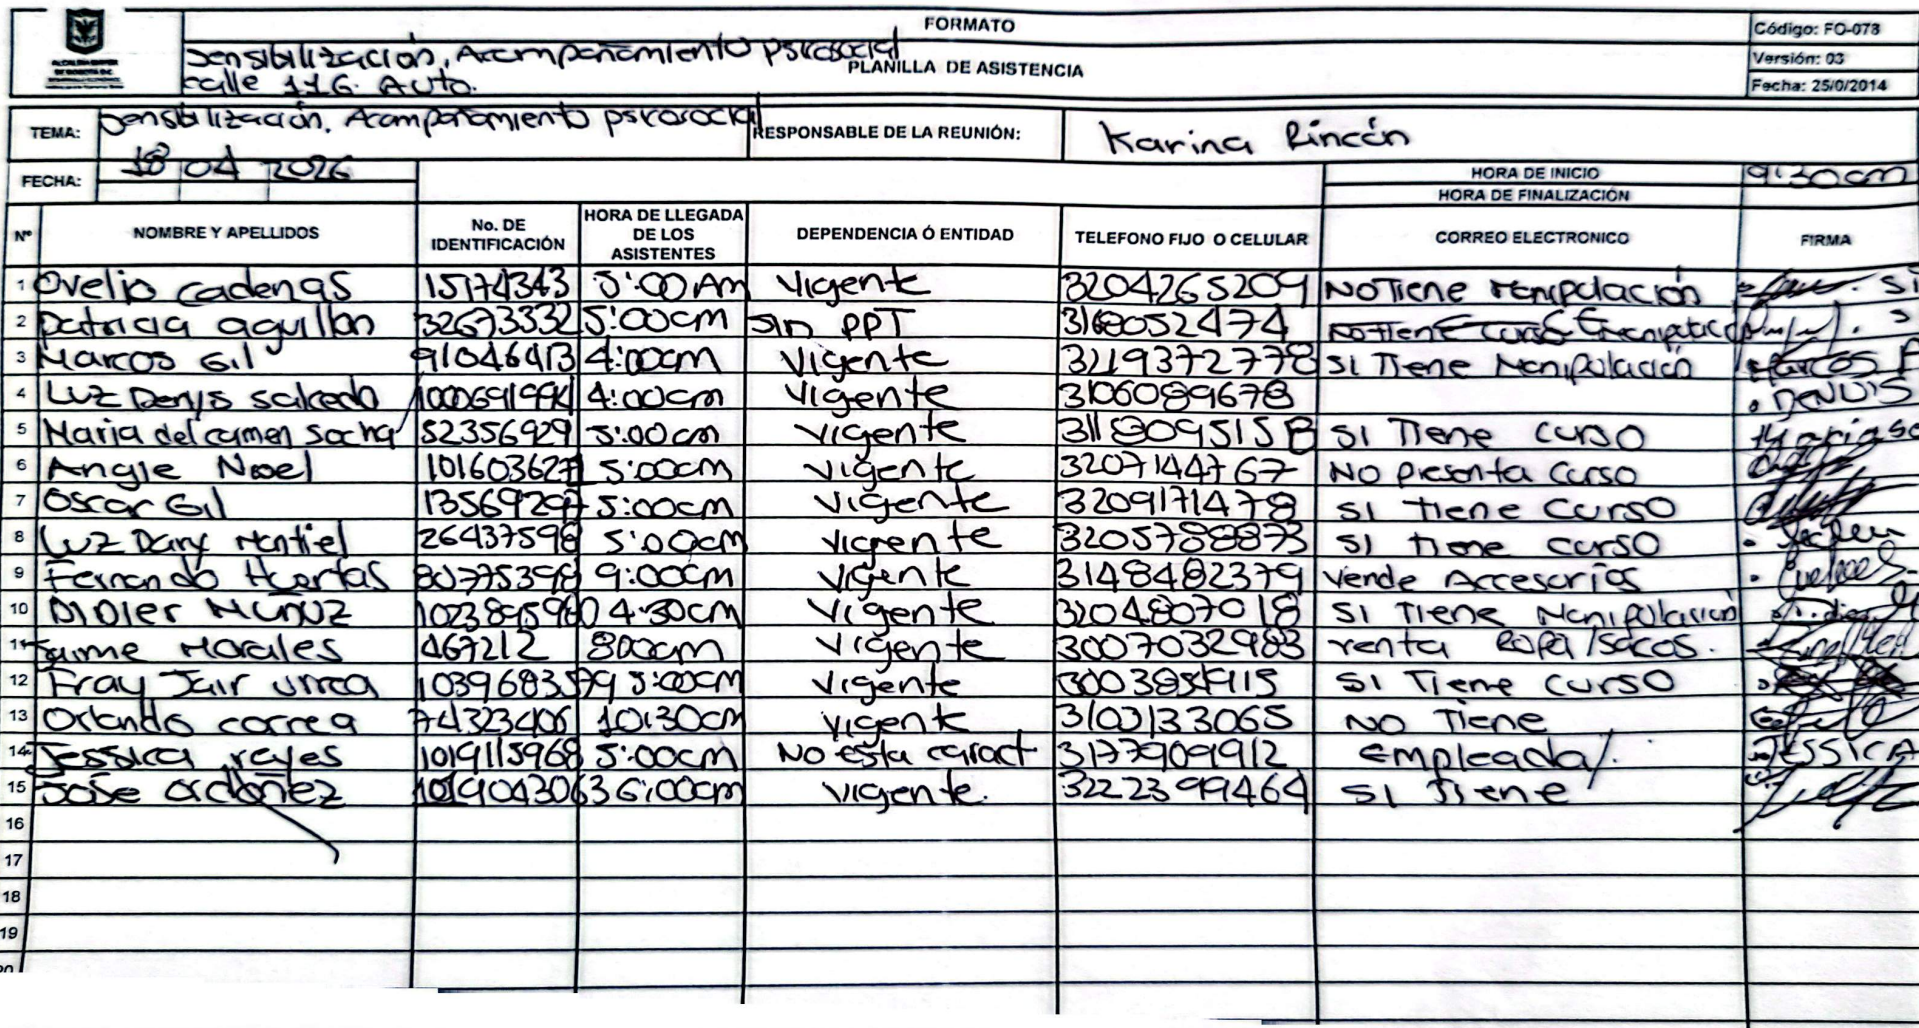 FORMATO
Código: FO-078
Sensibilización, Acompañamiento psicosocial
PLANILLA DE ASISTENCIA
Versión: 03
calle 116. Auto.
Fecha: 25/0/2014
TEMA: Sensibilización, Acompañamiento psicosocial RESPONSABLE DE LA REUNIÓN: Karina Rincón
FECHA: 18 04 2026 HORA DE INICIO 9:30am
HORA DE FINALIZACIÓN
Nº NOMBRE Y APELLIDOS No. DE IDENTIFICACIÓN HORA DE LLEGADA DE LOS ASISTENTES DEPENDENCIA Ó ENTIDAD TELEFONO FIJO O CELULAR CORREO ELECTRONICO FIRMA
1 Ovelio Cadenas 15174343 5:00 AM Vigente 3204265209 NO Tiene Manipulación
2 Patricia aguillon 32673332 5:00am Sin PPT 3168052474 NO Tiene
3 Marcos Gil 91046413 4:00am Vigente 3219372778 SI Tiene Manipulación Marcos
4 Luz Denys salcedo 4:00am Vigente 3106089678 DENUIS
5 Maria del carmen Socha 52356929 5:00am Vigente SI Tiene curso
6 Angie Noel 5:00am Vigente 3207144767 NO presenta curso
7 Oscar Gil 13569297 5:00am Vigente 3209171478 SI tiene curso
8 Luz Dary Montiel 26437598 5:00am Vigente 3205788873 SI tiene curso
9 Fernando Huertas 80775398 9:00am Vigente 3148482379 Vende Accesorios
10 Didier Muñuz 1023895960 4:30am Vigente 3204807018 SI Tiene Manipulación
11 Jaime Morales 467212 800am Vigente 3007032983 venta Ropa/sacos.
12 Fray Jair Urrea 1039683579 5:00am Vigente SI Tiene curso
13 Orlando correa 74323406 10:30am Vigente 3103133065 NO Tiene
14 Jessica reyes 1019115968 5:00am No esta caract 3177909912 Empleada/. JESSICA
15 Jose ordoñez 1019043063 6:00am Vigente. 3222399464 SI Tiene
16
17
18
19
20